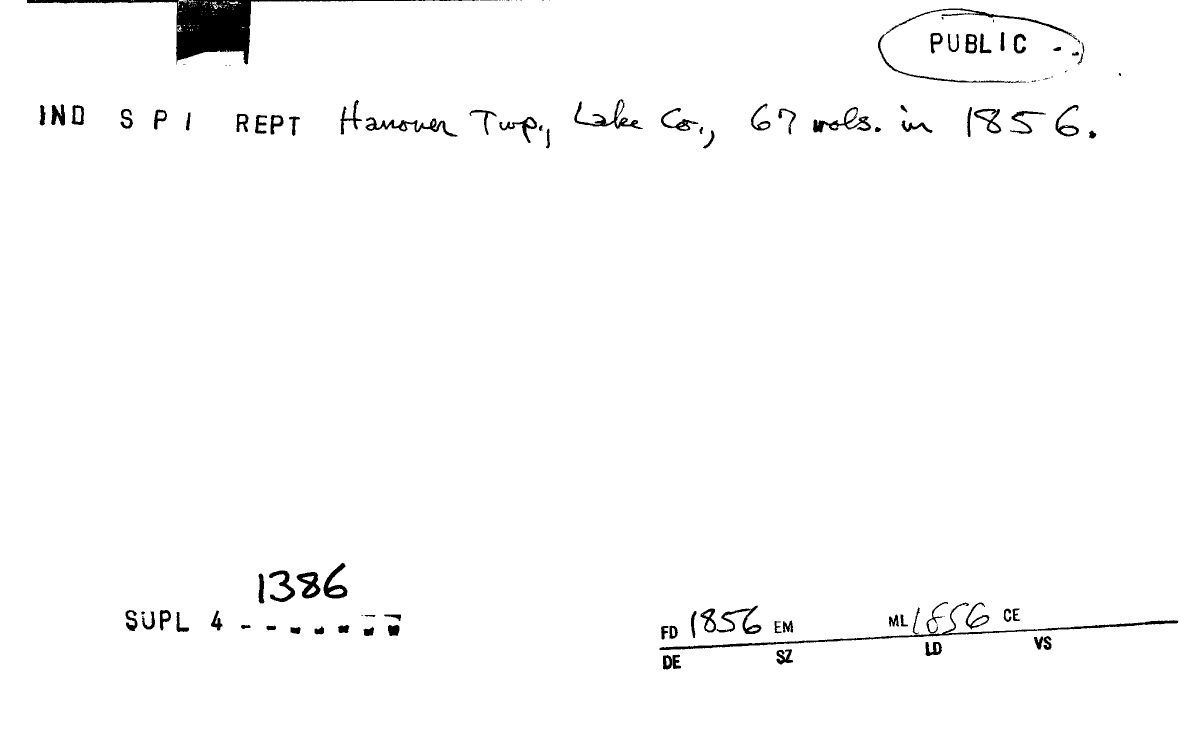 PUBLIC
IND S P I REPT Hanover Twp., Lake Co., 67 vols. in 1856.
1386
SUPL 4
FD 1856 EM ML 1856 CE
DE SZ LD VS